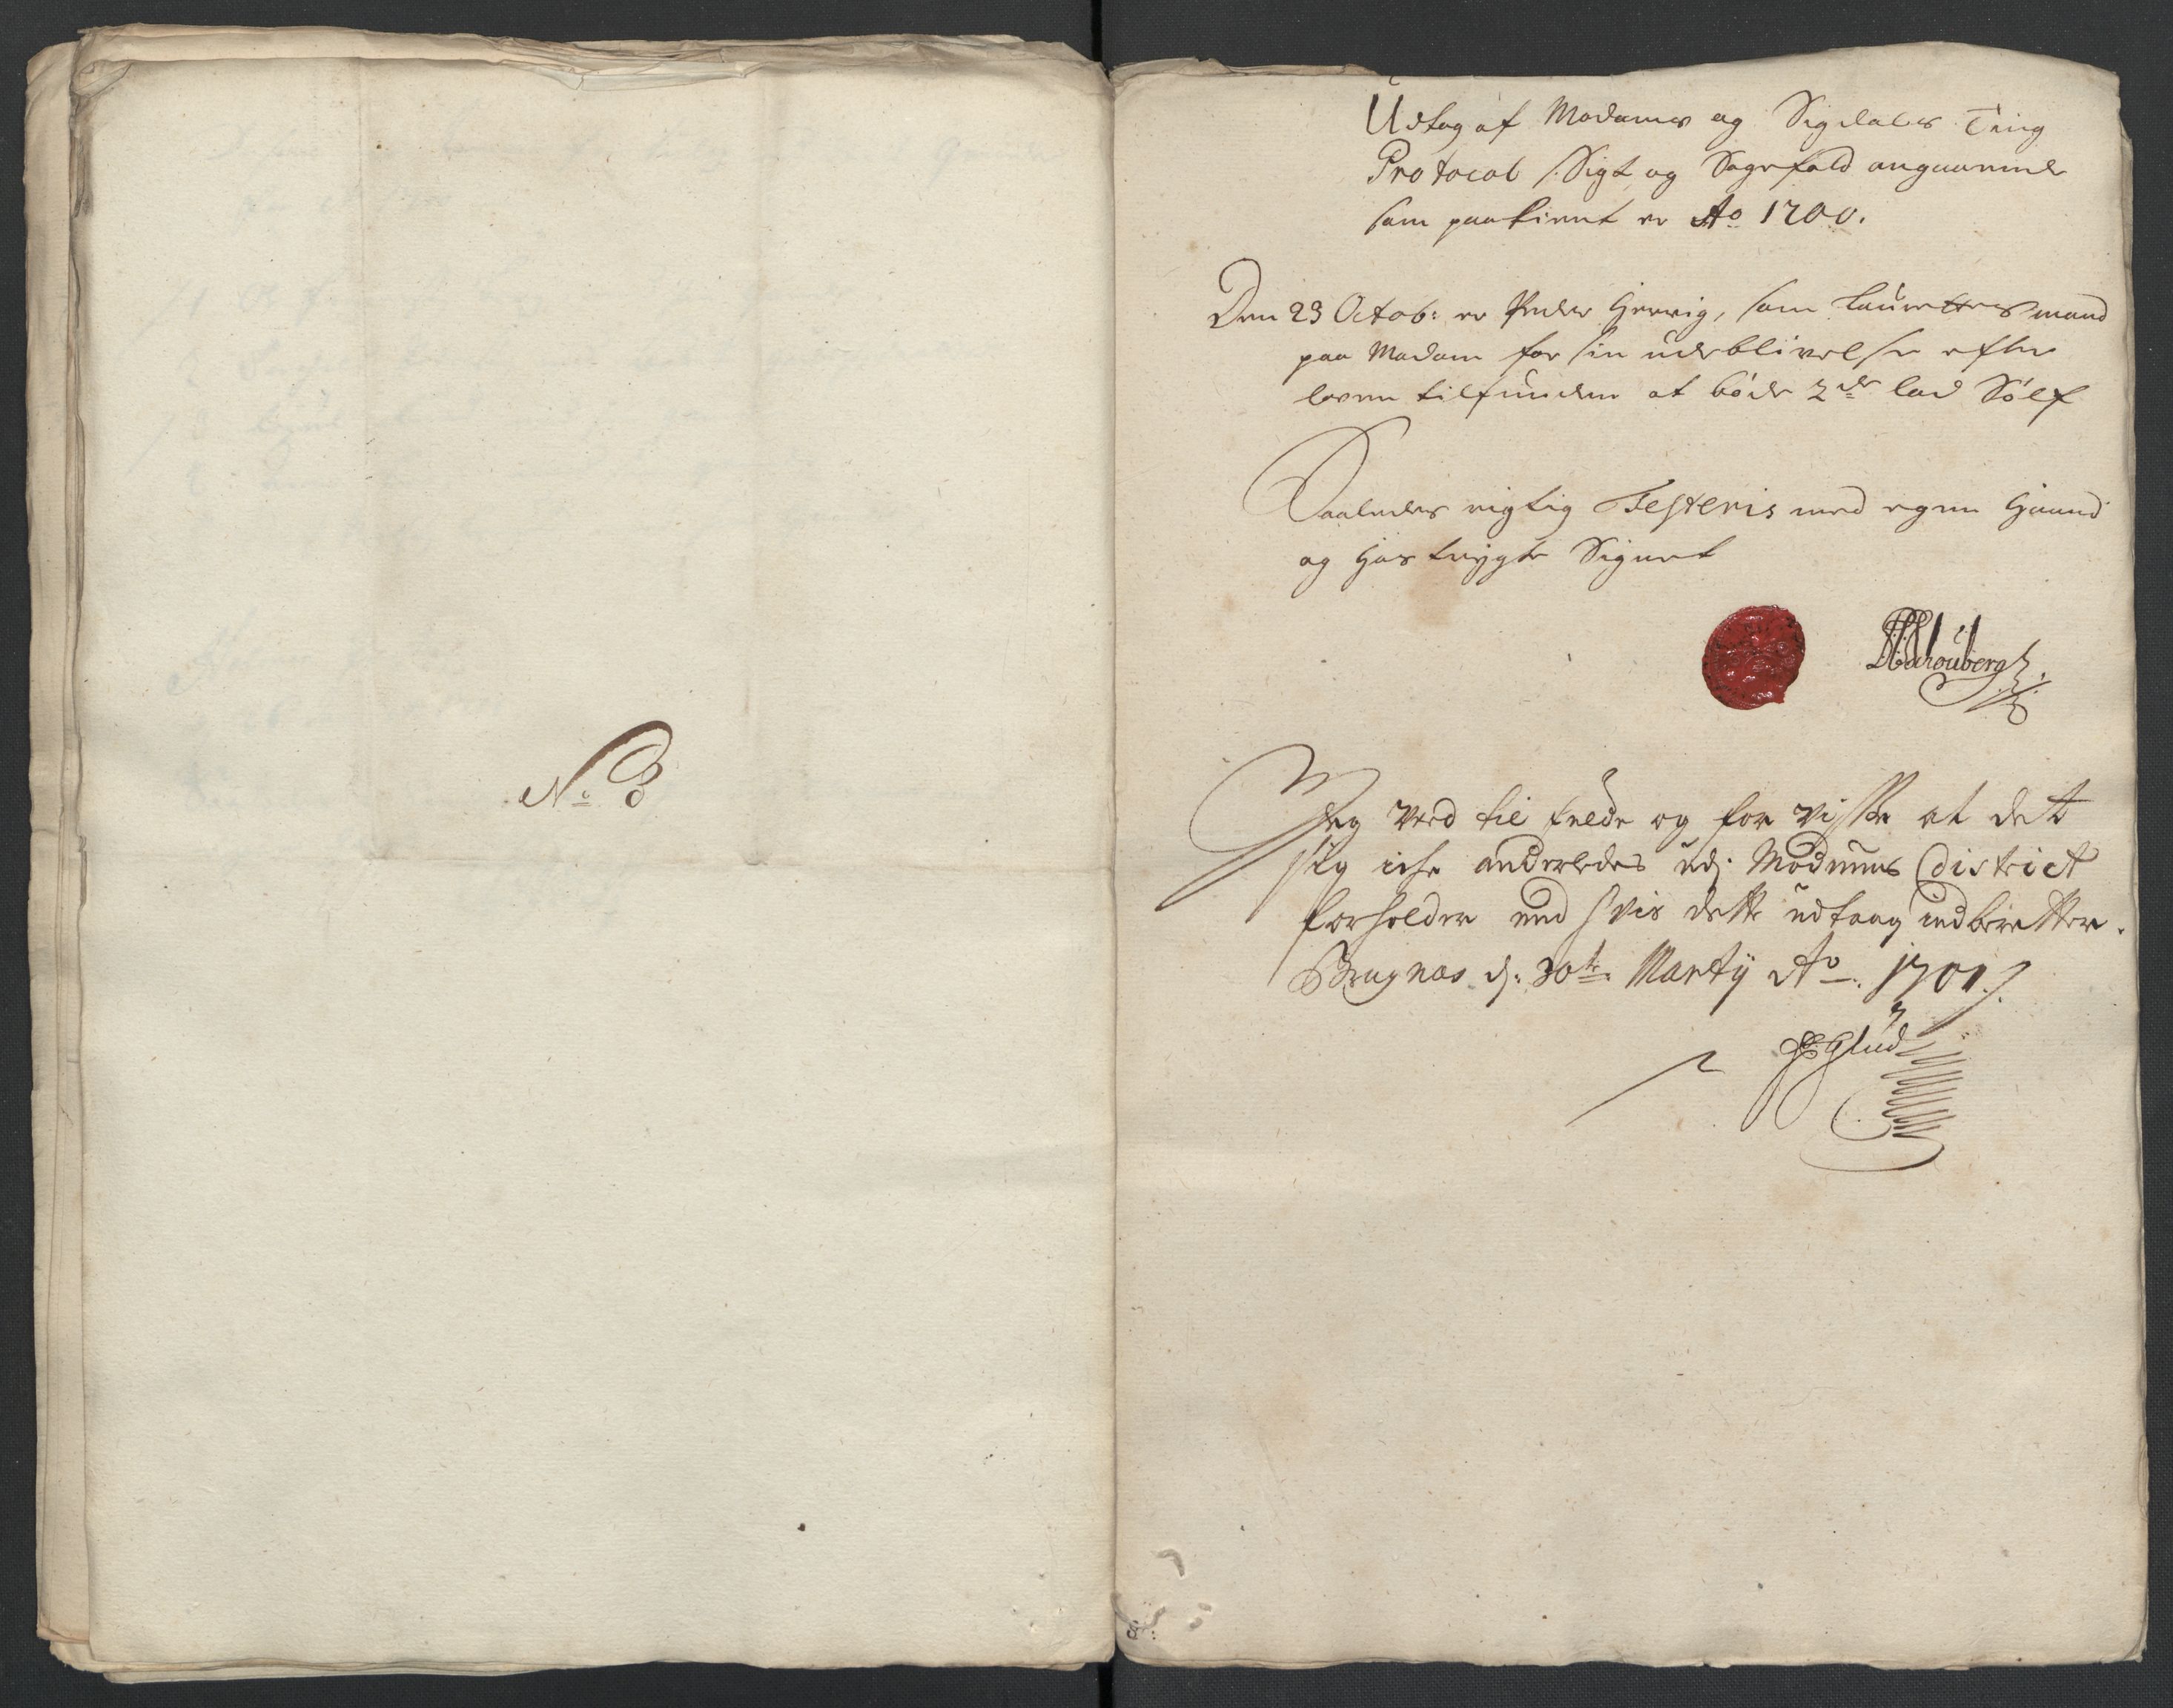 No 8
Udtog af Modums og Sigdals Ting
Protocol /: Sigt og Sagefald angaaende
som paatient er Ao 1700.
Den 23 Octob: er Peder Hervig, som Laurettes mand
paa Modum for sin udeblivelse efter
loven tilfunden at bøde 2de lod Sølf
Saaledes rigtig Testeris med egen Haand
og hos trÿgte Signet
Schouberg
Jeg veed til fulde og for visse at det
sig iche anderledes udj Modums District
forholder end hvis dette udtaag indberetter.
Bragnæs dj: 30te Martÿ Ao. 1701.
Glud